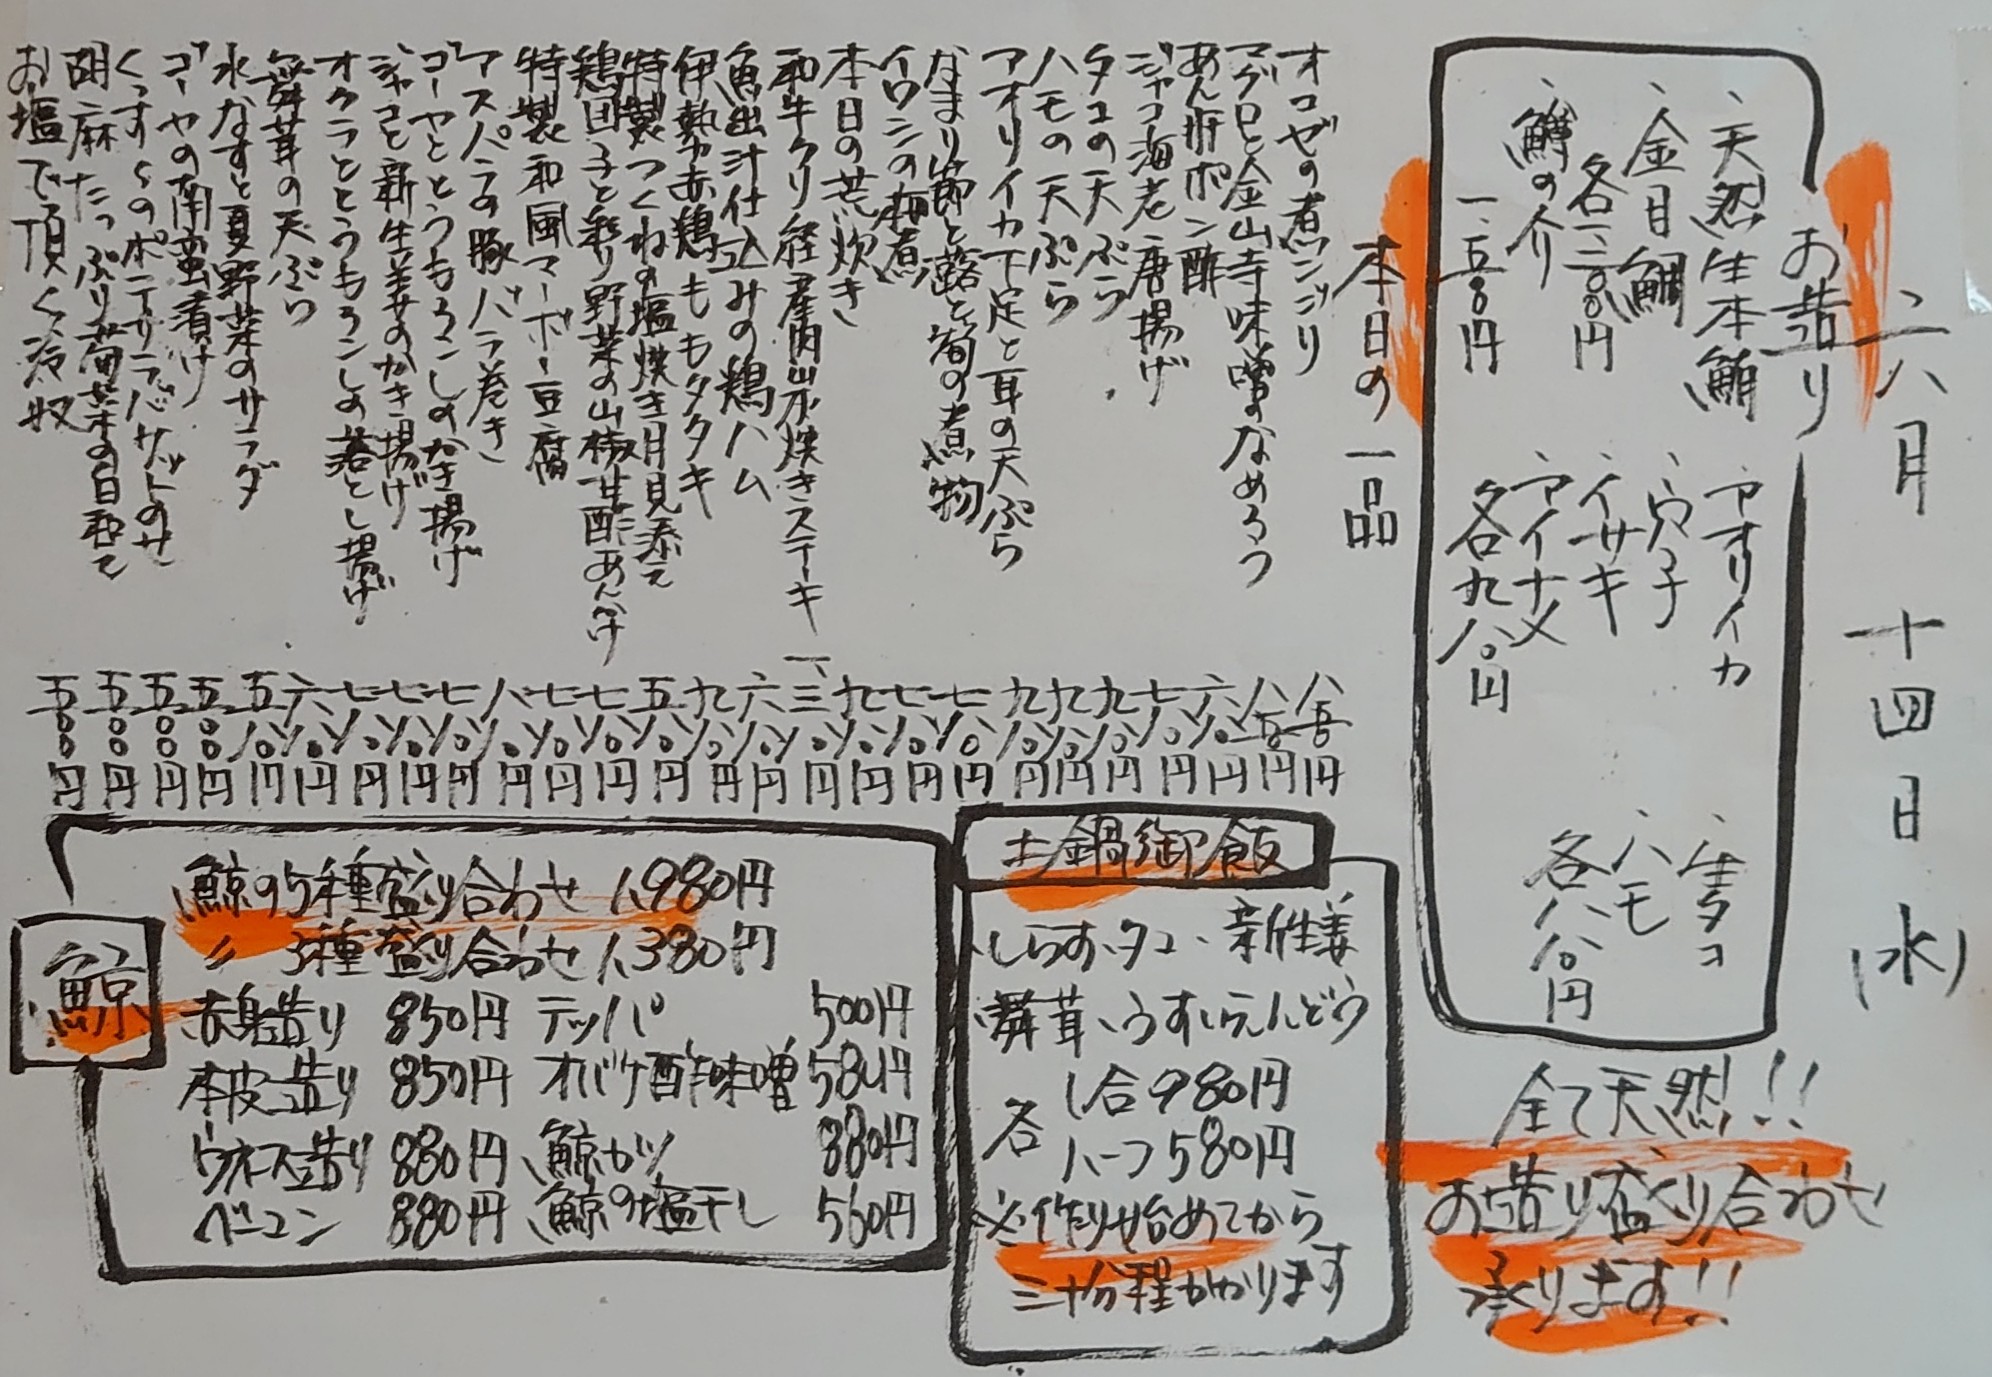 六月十四日(水)
お造り
、天然生本鮪
、金目鯛
各一三〇〇円
、鱒の介
一、五〇〇円
、アオリイカ
、穴子
、イサキ
、アイナメ
各九八〇円
、生タコ
、ハモ
各八八〇円
全て天然!!
お造り盛り合わせ
承ります!!
本日の一品
オコゼの煮ンジリ 八五〇円
マグロと金山寺味噌のなめろう 八五〇円
あん肝ポン酢 六八〇円
ジャコ海老唐揚げ 七八〇円
タコの天ぷら 九八〇円
ハモの天ぷら 九八〇円
アオリイカ下足と耳の天ぷら 九八〇円
なまり節と蕗と筍の煮物 七八〇円
イワシの梅煮 七八〇円
本日の荒炊き 九八〇円
和牛クリ 経産肉山水焼きステーキ 一、三八〇円
魚出汁仕込みの鶏ハム 六八〇円
伊勢赤鶏ももタタキ 九八〇円
特製つくねの塩焼き月見添え 五八〇円
鶏団子と彩り野菜の山椒甘酢あんかけ 七八〇円
特製和風マーボー豆腐 七八〇円
アスパラの豚バラ巻き 八八〇円
ゴーヤととうもろこしのかき揚げ 七八〇円
ジャコと新生姜のかき揚げ 七八〇円
オクラととうもろこしの落とし揚げ 七八〇円
舞茸の天ぷら 六八〇円
水なすと夏野菜のサラダ 五八〇円
ゴーヤの南蛮漬け 五〇〇円
くっすぅのポテサラバケットのせ 五〇〇円
胡麻たっぷり葡菜の白和え 五〇〇円
お塩で頂く冷奴 五〇〇円
土鍋御飯
、しらす、タコ、新生姜
、舞茸、うすいえんどう
各
1合980円
ハーフ580円
※作り始めてから
三十分程かかります
鯨
、鯨の5種盛り合わせ 1,980円
〃 3種盛り合わせ 1,380円
赤身造り 850円 テッパ 500円
本皮造り 850円 オバケ酢味噌 580円
ウネス造り 880円 、鯨カツ 880円
ベーコン 880円 鯨の塩干し 560円